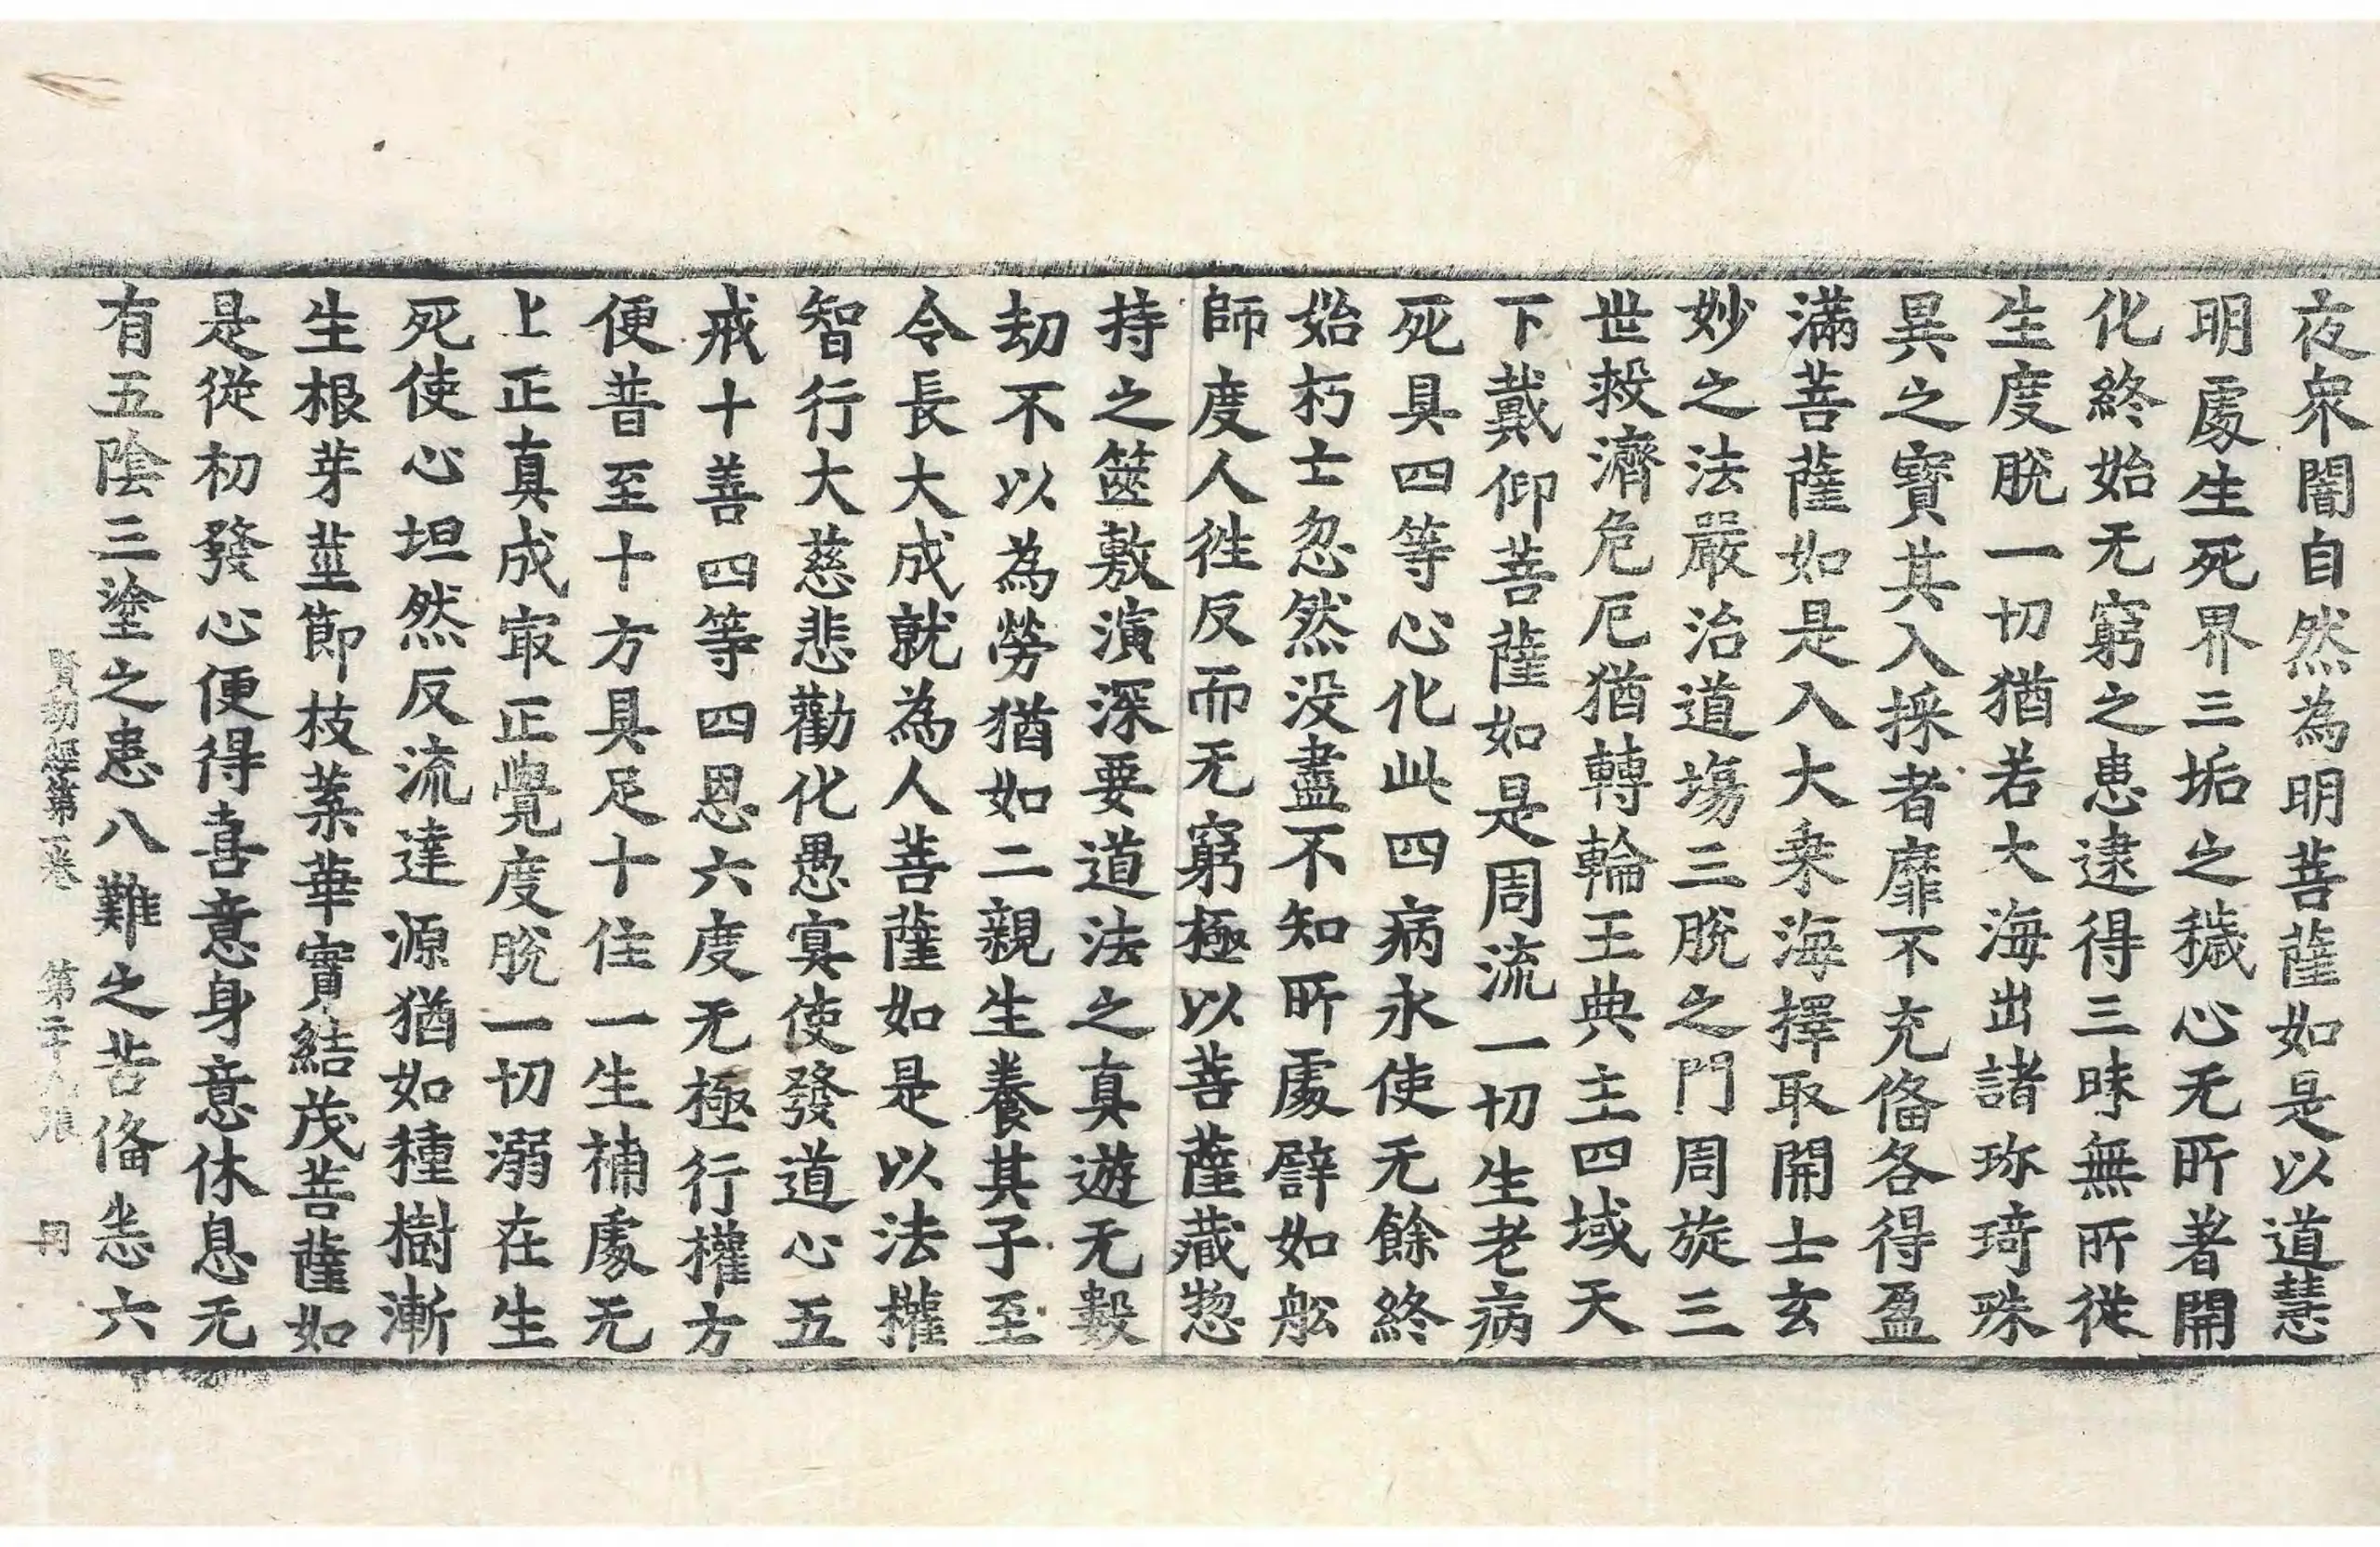 夜衆闇自然為明菩薩如是以道慧
明處生死界三垢之穢心无所著開
化終始无窮之患逮得三昧無所從
生度脫一切猶若大海出諸珎琦殊
異之寶其入採者靡不充俻各得盈
滿菩薩如是入大乗海擇取開士玄
妙之法嚴治道塲三脫之門周旋三
世救濟危厄猶轉輪王典主四域天
下戴仰菩薩如是周流一切生老病
死具四等心化此四病永使无餘終
始朽士忽然没盡不知所處譬如舩
師度人徃反而无窮極以菩薩藏惣
持之篋敷演深要道法之真遊无數
劫不以為勞猶如二親生養其子至
令長大成就為人菩薩如是以法權
智行大慈悲勸化愚冥使發道心五
戒十善四等四恩六度无極行權方
便普至十方具足十住一生補處无
上正真成冣正覺度脫一切溺在生
死使心坦然反流達源猶如種樹漸
生根芽莖節枝葉華實結茂菩薩如
是從初發心便得喜意身意休息无
有五陰三塗之患八難之苦俻恙六
賢劫經第一卷　第二十九張